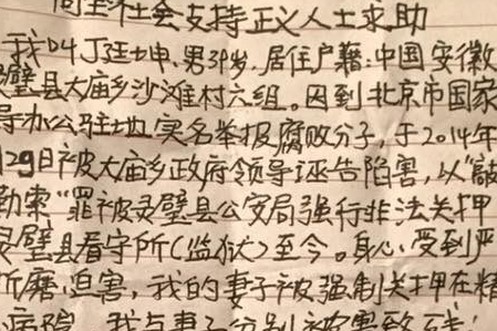 向全社会支持正义人士求助
我叫丁廷坤、男39岁、居住户藉:中国安徽
灵璧县大庙乡沙滩村六组。因到北京市国家
导办公驻地实名举报腐败分子,于2014年
29日被大庙乡政府领导诬告陷害,以“敲
勒索“罪被灵璧县公安局强行非法关押
灵璧县看守所(监狱)至今。身心受到严
折磨迫害,我的妻子被强制关押在精
病院,我与妻子分别被害致残!